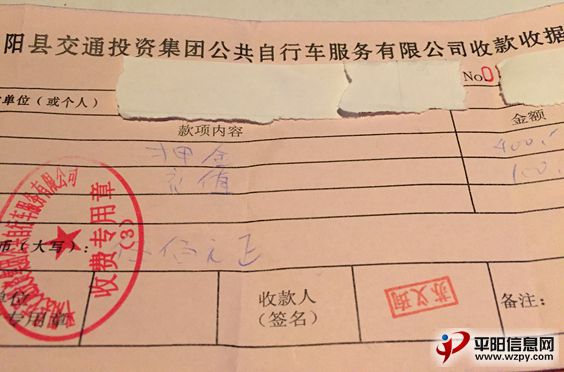 阳县交通投资集团公共自行车服务有限公司收款收据
No 0
单位（或个人）
款项内容
金额
押金
400.
充值
100.
币（大写）：
伍佰元正
收费专用章
（3）
自行车服务有限公司
单位
收款人
（签名）
苏义珣
备注：
平阳信息网
www.wzpy.com